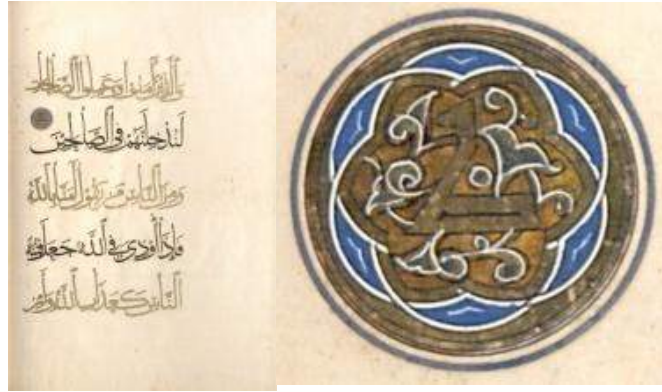 والذين آمنوا وعملوا الصالحات
لندخلنهم في الصالحين
ومن الناس من يقول آمنا بالله
فإذا أوذي في الله جعل فتنة
الناس كعذاب الله ولئن